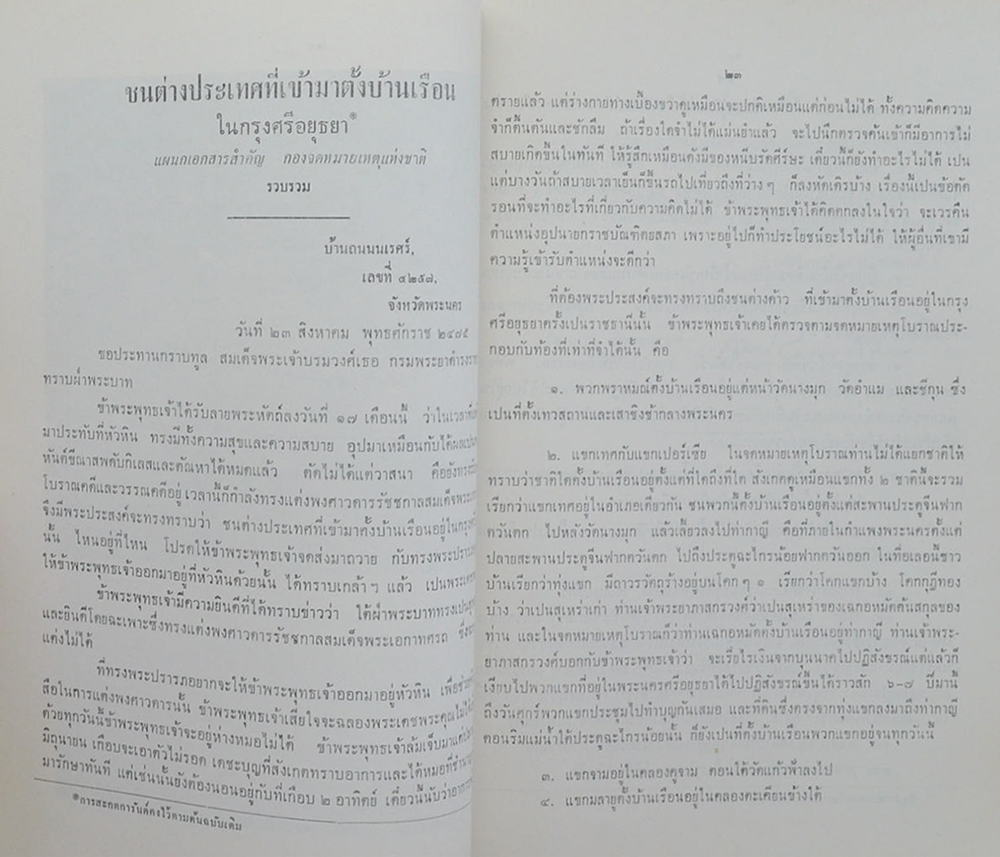 ชนต่างประเทศที่เข้ามาตั้งบ้านเรือน
ในกรุงศรีอยุธยา*
แผนกเอกสารสำคัญ กองจดหมายเหตุแห่งชาติ
รวบรวม
บ้านถนนนเรศร์,
เลขที่ ๔๒๕๗,
จังหวัดพระนคร
วันที่ ๒๓ สิงหาคม พุทธศักราช ๒๔๘๕
ขอประทานกราบทูล สมเด็จพระเจ้าบรมวงศ์เธอ กรมพระยาดำรงรา
ทราบฝ่าพระบาท
ข้าพระพุทธเจ้าได้รับลายพระหัตถ์ลงวันที่ ๑๗ เดือนนี้ ว่าในเวลา
มาประทับที่หัวหิน ทรงมีทั้งความสุขและความสบาย อุปมาเหมือนกับได้
หันต์ขีณาสพดับกิเลสและตัณหาได้หมดแล้ว ตัดไม่ได้แต่วาสนา คือยังทรง
โบราณคดีและวรรณคดีอยู่ เวลานี้ก็กำลังทรงแต่งพงศาวดารรัชชกาลสมเด็จพระ
จึงมีพระประสงค์จะทรงทราบว่า ชนต่างประเทศที่เข้ามาตั้งบ้านเรือนอยู่ในกรุง
นั้น ไหนอยู่ที่ไหน โปรดให้ข้าพระพุทธเจ้าจดส่งมาถวาย กับทรงพระ
ให้ข้าพระพุทธเจ้าออกมาอยู่ที่หัวหินด้วยนั้น ได้ทราบเกล้าฯ แล้ว เปนพระ
ข้าพระพุทธเจ้ามีความยินดีที่ได้ทราบข่าวว่า ใต้ฝ่าพระบาททรงเปน
และยินดีโดยฉะเพาะซึ่งทรงแต่งพงศาวดารรัชชกาลสมเด็จพระเอกาทศรถ
แต่งไม่ได้
ที่ทรงพระปรารภอยากจะให้ข้าพระพุทธเจ้าออกมาอยู่หัวหิน เพื่อ
สือในการแต่งพงศาวดารนั้น ข้าพระพุทธเจ้าเสียใจจะฉลองพระเดชพระคุณไม่ได้
ด้วยทุกวันนี้ข้าพระพุทธเจ้าจะอยู่ห่างหมอไม่ได้ ข้าพระพุทธเจ้าล้มเจ็บมาแต่
มิถุนายน เกือบจะเอาตัวไม่รอด เดชะบุญที่สังเกตทราบอาการและได้หมอที่ชำนาญ
มารักษาทันที แต่เช่นนั้นยังต้องนอนอยู่กับที่เกือบ ๒ อาทิตย์ เดี๋ยวนี้นับว่า
*การสะกดการันต์คงไว้ตามต้นฉบับเดิม
๒๓
ตรายแล้ว แต่ร่างกายทางเบื้องขวาดูเหมือนจะปกติเหมือนแต่ก่อนไม่ได้ ทั้งความคิดความ
จำก็ตื้นตันและชักลืม ถ้าเรื่องใดจำไม่ได้แม่นยำแล้ว จะไปนึกตรวจค้นเข้าก็มีอาการไม่
สบายเกิดขึ้นในทันที ให้รู้สึกเหมือนดังมีของหนีบรัดศีร์ษะ เดี๋ยวนี้ก็ยังทำอะไรไม่ได้ เปน
แต่บางวันถ้าสบายเวลาเย็นก็ขึ้นรถไปเที่ยวถึงที่ว่างๆ ก็ลงหัดเดิรบ้าง เรื่องนี้เปนข้อตัด
รอนที่จะทำอะไรที่เกี่ยวกับความคิดไม่ได้ ข้าพระพุทธเจ้าได้คิดตกลงในใจว่า จะเวรคืน
ตำแหน่งอุปนายกราชบัณฑิตยสภา เพราะอยู่ไปก็ทำประโยชน์อะไรไม่ได้ ให้ผู้อื่นที่เขามี
ความรู้เข้ารับตำแหน่งจะดีกว่า
ที่ต้องพระประสงค์จะทรงทราบถึงชนต่างด้าว ที่เข้ามาตั้งบ้านเรือนอยู่ในกรุง
ศรีอยุธยาครั้งเปนราชธานีนั้น ข้าพระพุทธเจ้าเคยได้ตรวจตามจดหมายเหตุโบราณประ-
กอบกับท้องที่เท่าที่จำได้นั้น คือ
๑. พวกพราหมณ์ตั้งบ้านเรือนอยู่แต่หน้าวัดนางมุก วัดอำแม และชีกุน ซึ่ง
เปนที่ตั้งเทวสถานและเสาชิงช้ากลางพระนคร
๒. แขกเทศกับแขกเปอร์เซีย ในจดหมายเหตุโบราณท่านไม่ได้แยกชาติให้
ทราบว่าชาติใดตั้งบ้านเรือนอยู่ตั้งแต่ที่ใดถึงที่ใด สังเกตดูเหมือนแขกทั้ง ๒ ชาตินี้จะรวม
เรียกว่าแขกเทศอยู่ในอำเภอเดียวกัน ชนพวกนี้ตั้งบ้านเรือนอยู่ตั้งแต่สะพานประตูจีนฟาก
ตวันตก ไปหลังวัดนางมุก แล้วเลี้ยวลงไปท่ากายี คือที่ภายในกำแพงพระนครตั้งแต่
ปลายสะพานประตูจีนฟากตวันตก ไปถึงประตูฉะไกรน้อยฟากตวันออก ในที่ยเลอนี้ชาว
บ้านเรียกว่าทุ่งแขก มีถาวรวัตถุร้างอยู่บนโคกๆ ๑ เรียกว่าโคกแขกบ้าง โคกกุฎีทอง
บ้าง ว่าเปนสุเหร่าเก่า ท่านเจ้าพระยาภาสกรวงศ์ว่าเปนสุเหร่าของเฉกอหมัดต้นสกุลของ
ท่าน และในจดหมายเหตุโบราณก็ว่าท่านเฉกอหมัดตั้งบ้านเรือนอยู่ท่ากายี ท่านเจ้าพระ-
ยาภาสกรวงศ์บอกกับข้าพระพุทธเจ้าว่า จะเรี่ยไรเงินจากบุนนาคไปปฏิสังขรณ์แต่แล้วก็
เงียบไปพวกแขกที่อยู่ในพระนครศรีอยุธยาได้ไปปฏิสังขรณ์ขึ้นได้ราวสัก ๖-๗ ปีมานี้
ถึงวันศุกร์พวกแขกประชุมไปทำบุญกันเสมอ และที่ดินซึ่งตรงจากทุ่งแขกลงมาถึงท่ากายี
ตอนริมแม่น้ำใต้ประตูฉะไกรน้อยนั้น ก็ยังเปนที่ตั้งบ้านเรือนพวกแขกอยู่จนทุกวันนี้
๓. แขกจามอยู่ในคลองคูจาม ตอนใต้วัดแก้วฟ้าลงไป
๔. แขกมลายูตั้งบ้านเรือนอยู่ในคลองตะเคียนข้างใต้